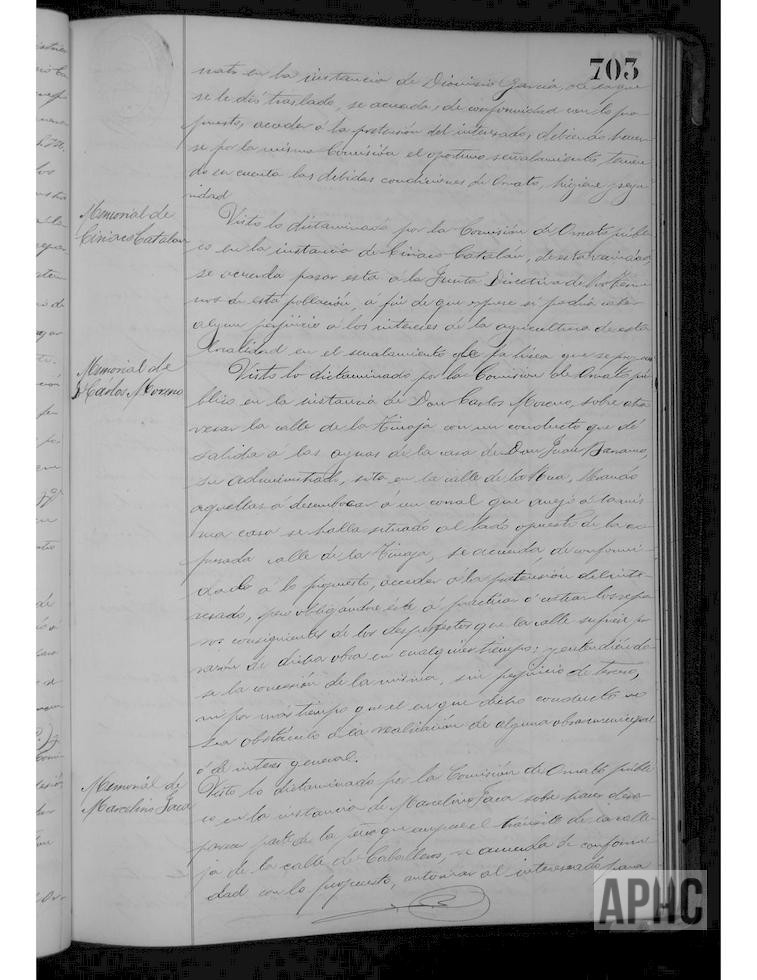 703
nato en la instancia de Dionisio García, de la que
se le dió traslado, se acuerda, de conformidad con lo pro
puesto, acceder á la pretensión del interesado, debiendo hacer
se por la misma Comisión el oportuno señalamiento, tenien
do en cuenta las debidas condiciones de Ornato, higiene y segu
ridad
Memorial de
Ciriaco Catalan
Visto lo dictaminado por la Comisión de Ornato públi
co en la instancia de Ciriaco Catalán, de esta vecindad,
se acuerda pasar esta á la Junta Directiva de los
de esta población, á fin de que exprese si podría haber
algun perjuicio á los intereses de la agricultura de esta
localidad en el señalamiento de la línea que se
Memorial de
D. Cárlos Moreno
Visto lo dictaminado por la Comisión de Ornato pú
blico en la instancia de Don Carlos Moreno, sobre atra
vesar la calle de la Tinaja con un conducto que dé
salida á las aguas de la casa de Don Juan
su administrado, sita en la calle de la llevando
aquellas á desembocar á un corral que anejo á la mis
ma casa se halla situado al lado opuesto de la ex
presada calle de la Tinaja, se acuerda, de conformi
dad á lo propuesto, acceder á la pretensión del inte
resado, pero obligándose éste á practicar ó costear los repa
ros consiguientes de los desperfectos que la calle sufriere por
razón de dicha obra en cualquier tiempo; y entendiéndo
se la concesión de la misma, sin perjuicio de tercero,
ni por más tiempo que el en que dicho conducto no
sea obstáculo á la realización de alguna obra municipal
ó de interés general.
Memorial de
Marcelino Jaca
Visto lo dictaminado por la Comisión de Ornato públi
co en la instancia de Marcelino Jaca sobre hacer desa
parecer parte de la peña que el tránsito de la calle
ja de la calle de Caballeros, se acuerda de conformi
dad con lo propuesto, autorizar al interesado para
APHC